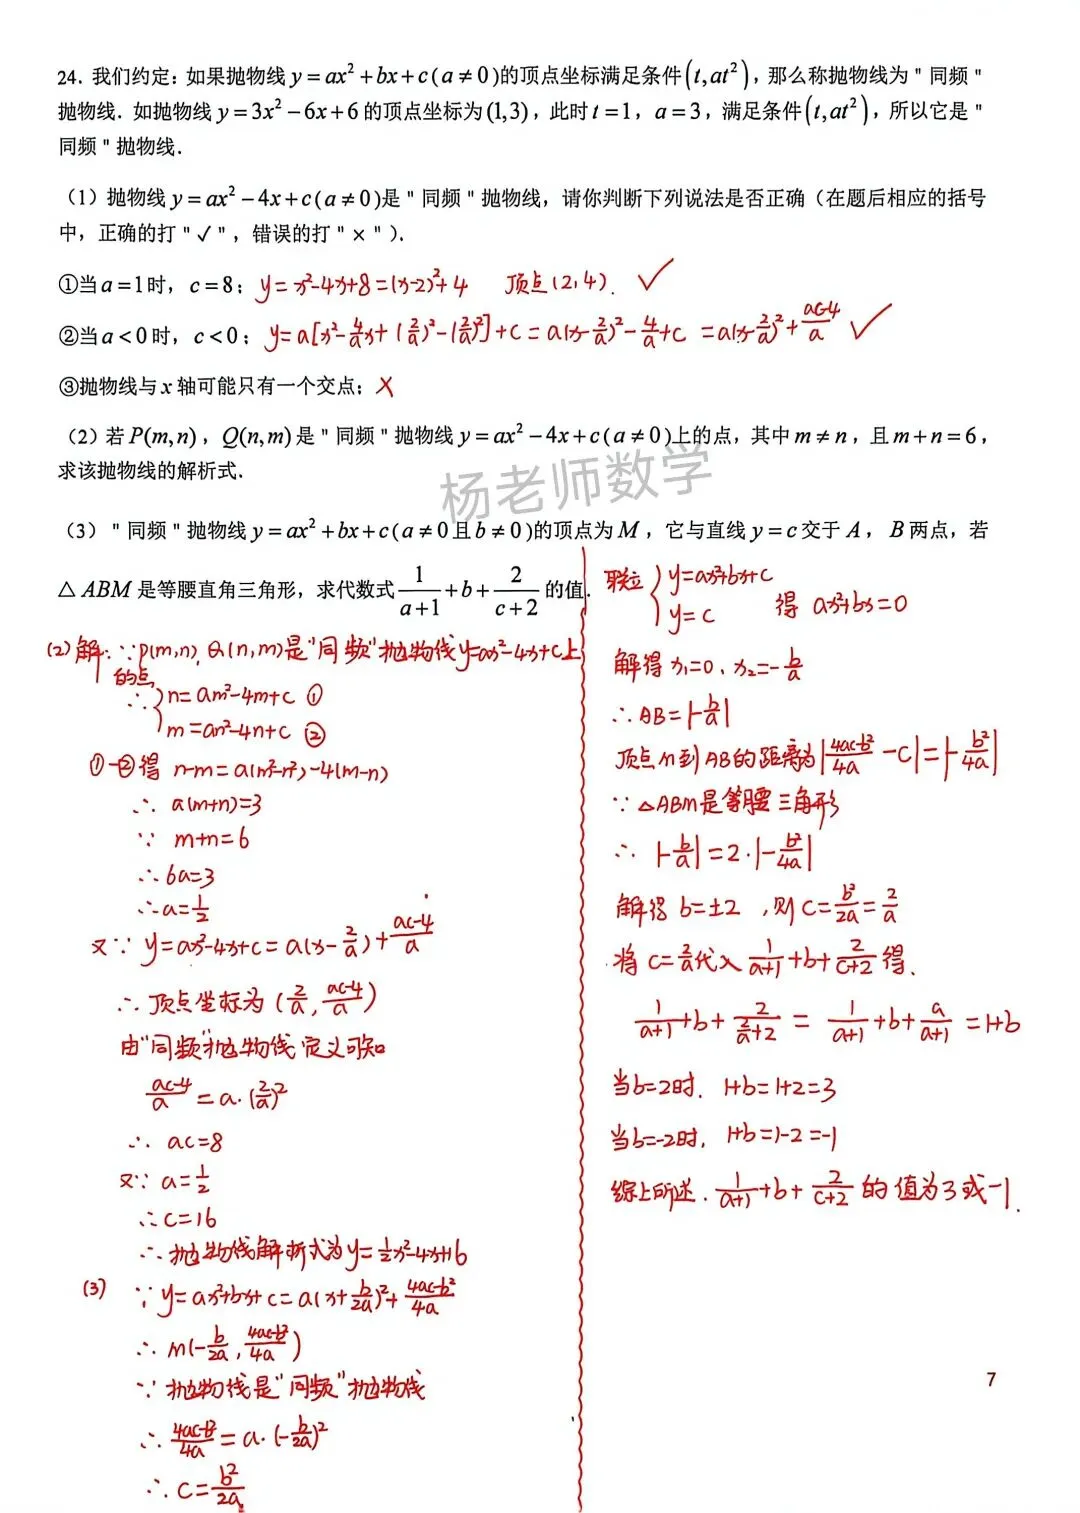 24. 我们约定：如果抛物线 y = ax² + bx + c (a ≠ 0)的顶点坐标满足条件(t, at²)，那么称抛物线为＂同频＂
抛物线．如抛物线 y = 3x² − 6x + 6 的顶点坐标为(1,3)，此时 t = 1，a = 3，满足条件(t, at²)，所以它是＂
同频＂抛物线．
（1）抛物线 y = ax² − 4x + c (a ≠ 0)是＂同频＂抛物线，请你判断下列说法是否正确（在题后相应的括号
中，正确的打＂✓＂，错误的打＂×＂）．
①当 a = 1 时，c = 8； y = x²-4x+8 = (x-2)²+4 顶点(2,4). ✓
②当 a < 0 时，c < 0； y = a[x²-4/a x+(2/a)²-(2/a)²]+c = a(x-2/a)²-4/a+c = a(x-2/a)²+(ac-4)/a ✓
③抛物线与 x 轴可能只有一个交点； ×
（2）若 P(m,n)，Q(n,m) 是＂同频＂抛物线 y = ax² − 4x + c (a ≠ 0)上的点，其中 m ≠ n，且 m + n = 6，
求该抛物线的解析式．
杨老师数学
（3）＂同频＂抛物线 y = ax² + bx + c (a ≠ 0 且 b ≠ 0)的顶点为 M，它与直线 y = c 交于 A，B 两点，若
△ABM 是等腰直角三角形，求代数式 1/(a+1) + b + 2/(c+2) 的值．
(2) 解：∵P(m,n), Q(n,m)是"同频"抛物线y=ax²-4x+c上
的点
∴ { n=am²-4m+c ①
m=an²-4n+c ②
①-②得 n-m=a(m²-n²)-4(m-n)
∴ a(m+n)=3
∵ m+n=6
∴6a=3
∴a=1/2
又∵ y=ax²-4x+c=a(x-2/a)+(ac-4)/a
∴顶点坐标为(2/a, (ac-4)/a)
由"同频"抛物线定义可知
(ac-4)/a = a·(2/a)²
∴ ac=8
又∵ a=1/2
∴c=16
∴抛物线解析式为y=1/2x²-4x+16
(3) ∵y=ax²+bx+c=a(x+b/2a)²+(4ac-b²)/4a
∴ M(-b/2a, (4ac-b²)/4a)
∵抛物线是"同频"抛物线
∴ (4ac-b²)/4a = a·(-b/2a)²
∴ c=b²/2a
联立 { y=ax²+bx+c
y=c
得 ax²+bx=0
解得 x₁=0, x₂=-b/a
∴AB=|-b/a|
顶点M到AB的距离为|(4ac-b²)/4a - c|=|-b²/4a|
∵△ABM是等腰三角形
∴ |-b/a|=2·|-b²/4a|
解得 b=±2，则 c=b²/2a=2/a
将 c=2/a代入 1/(a+1)+b+2/(c+2)得.
1/(a+1)+b+2/(2/a+2) = 1/(a+1)+b+a/(a+1) =1+b
当b=2时. 1+b=1+2=3
当b=-2时, 1+b=1-2=-1
综上所述. 1/(a+1)+b+2/(c+2)的值为3或-1.
7